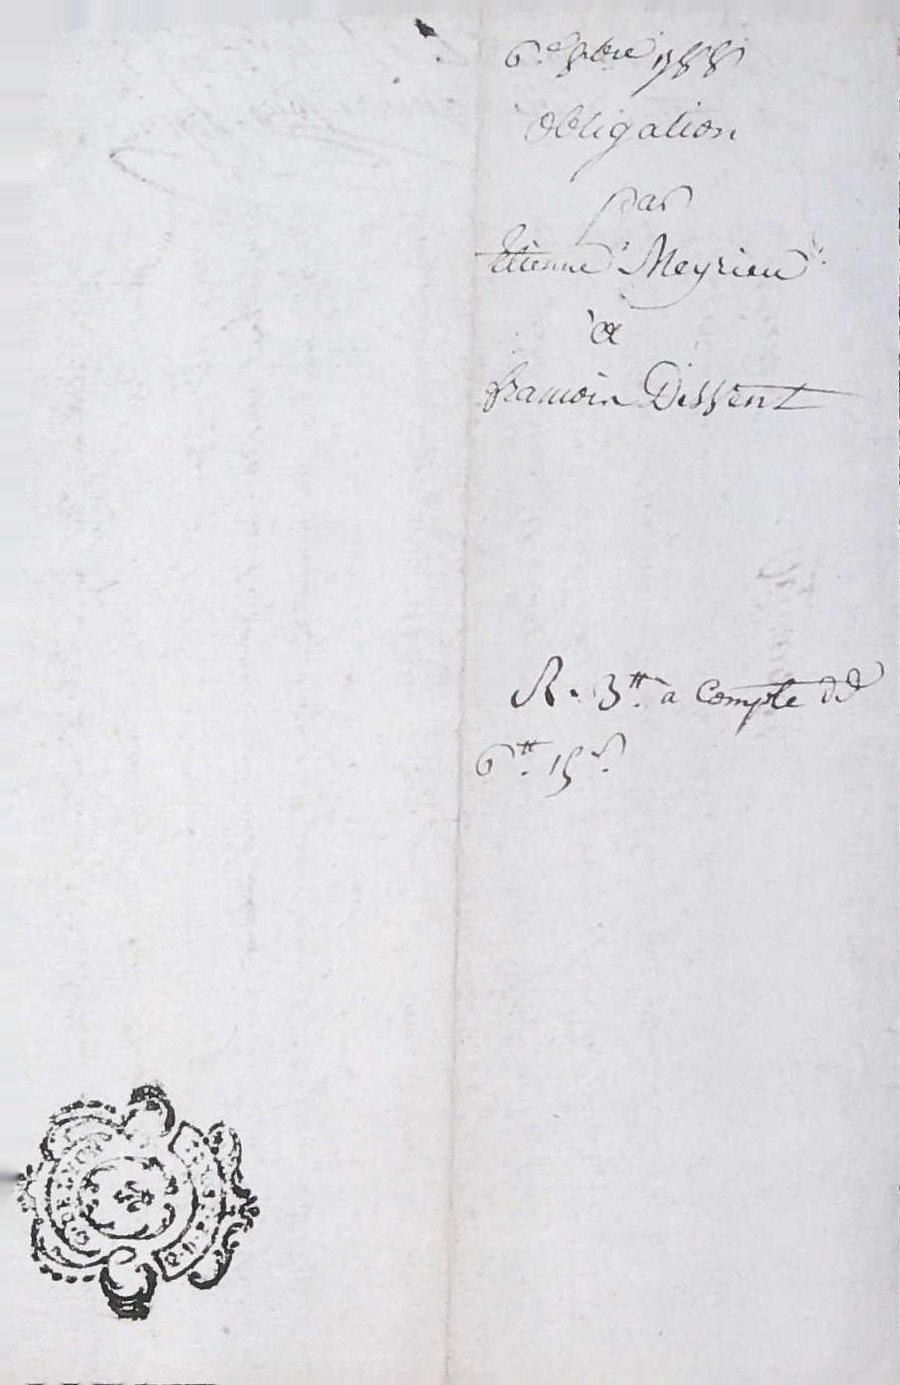 6.e 8bre 1788
obligation
par
Etienne Meyrieu
à
francois Dissent
R. 3tt. à Compte de
6tt. 15s.
G. DE LYON